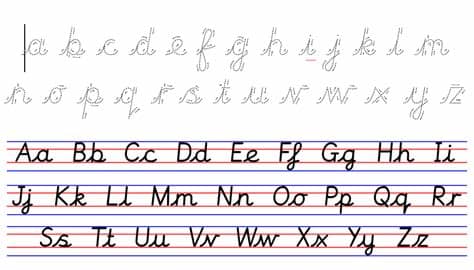 a b c d e f g h i j k l m
n o p q r s t u v w x y z
Aa Bb Cc Dd Ee Ff Gg Hh Ii
Jj Kk Ll Mm Nn Oo Pp Qq Rr
Ss Tt Uu Vv Ww Xx Yy Zz